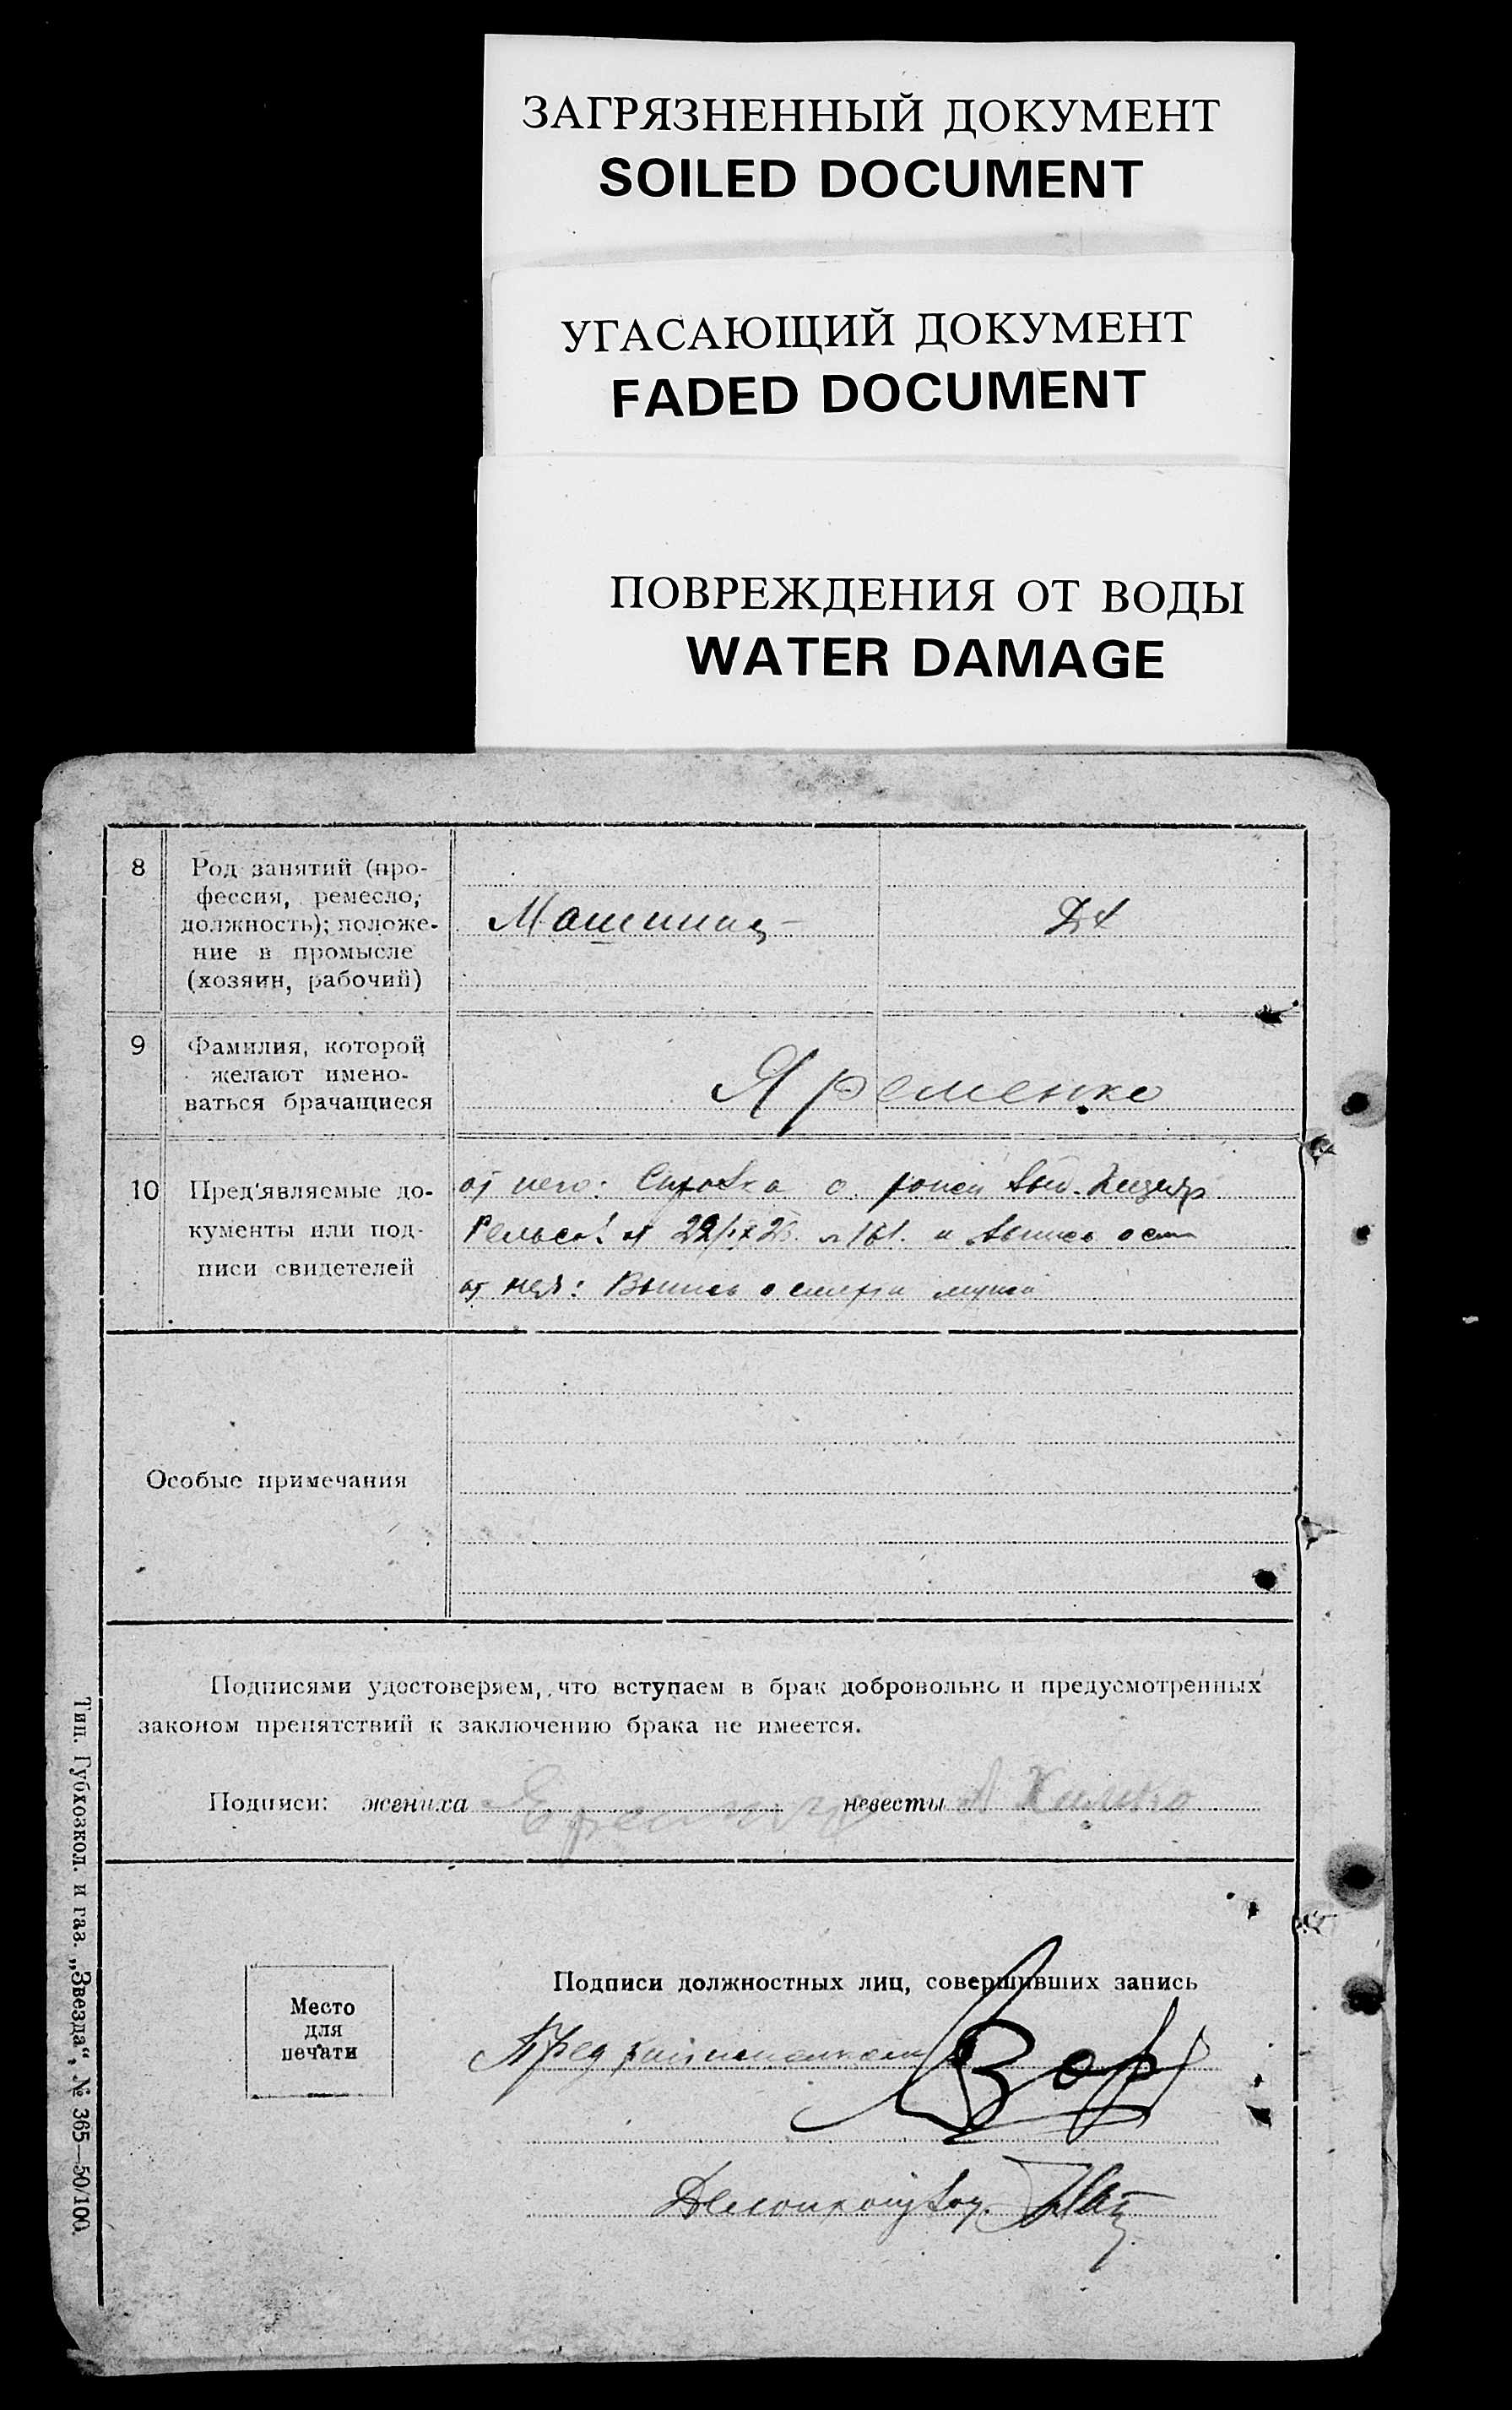 ЗАГРЯЗНЕННЫЙ ДОКУМЕНТ
SOILED DOCUMENT
УГАСАЮЩИЙ ДОКУМЕНТ
FADED DOCUMENT
ПОВРЕЖДЕНИЯ ОТ ВОДЫ
WATER DAMAGE
8
Род занятий (про-
фессия, ремесло,
должность); положе-
ние в промысле
(хозяин, рабочий)
Машинист
Дх
9
Фамилия, которой
желают имено-
ваться брачащиеся
Яременко
10
Пред'являемые до-
кументы или под-
писи свидетелей
от него: Справка о
от 22/IX 26. № 161. и
от нея: Выпись о смерти мужа
Особые примечания
Подписями удостоверяем, что вступаем в брак добровольно и предусмотренных
законом препятствий к заключению брака не имеется.
Подписи: жениха невесты А Химко
Место
для
печати
Подписи должностных лиц, совершивших запись
Делопроизвод.
Тип. Губхозкол. и газ. „Звезда“, № 365—50/100.